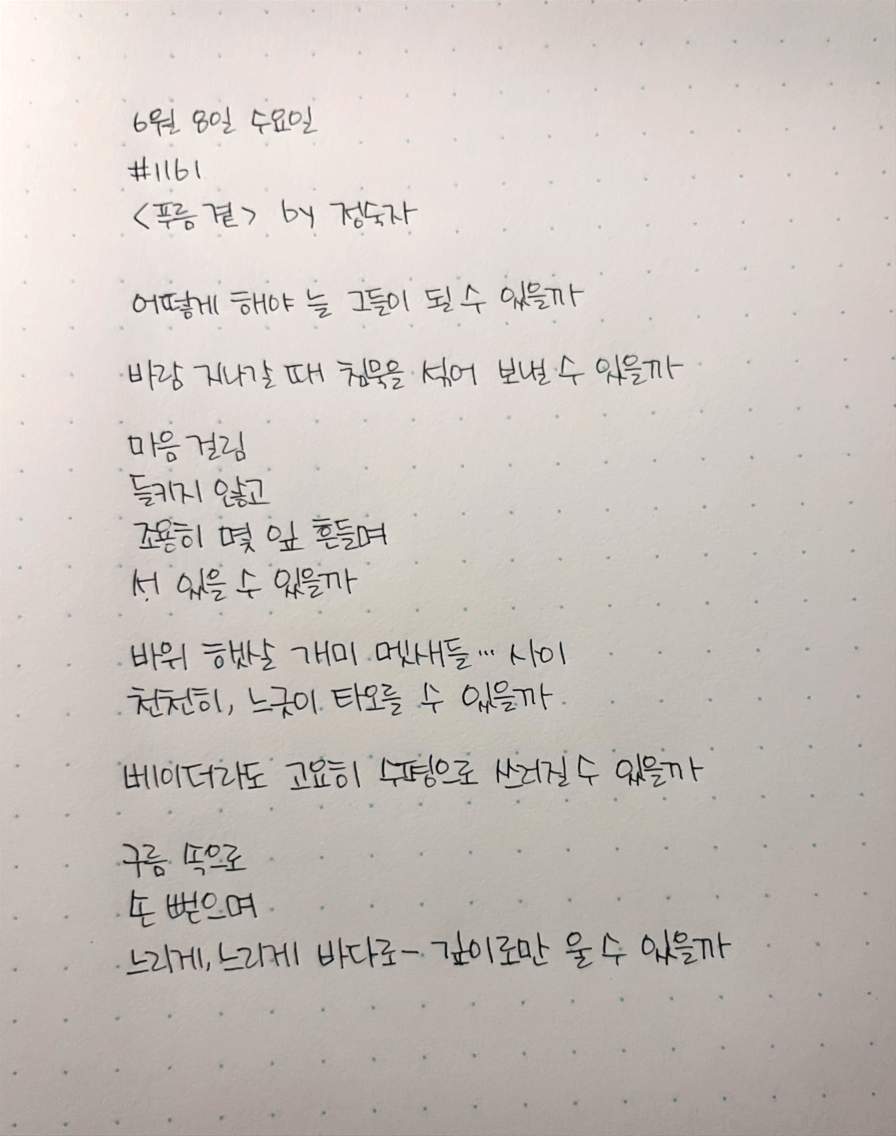 6월 8일 수요일
#1161
<푸름 곁> by 정숙자
어떻게 해야 늘 그들이 될 수 있을까
바람 지나갈 때 침묵을 섞어 보낼 수 있을까
마음 걸림
들키지 않고
조용히 몇 잎 흔들며
서 있을 수 있을까
바위 햇살 개미 멧새들… 사이
천천히, 느긋이 타오를 수 있을까
베이더라도 고요히 수평으로 쓰러질 수 있을까
구름 속으로
손 뻗으며
느리게, 느리게 바다로- 깊이로만 울 수 있을까